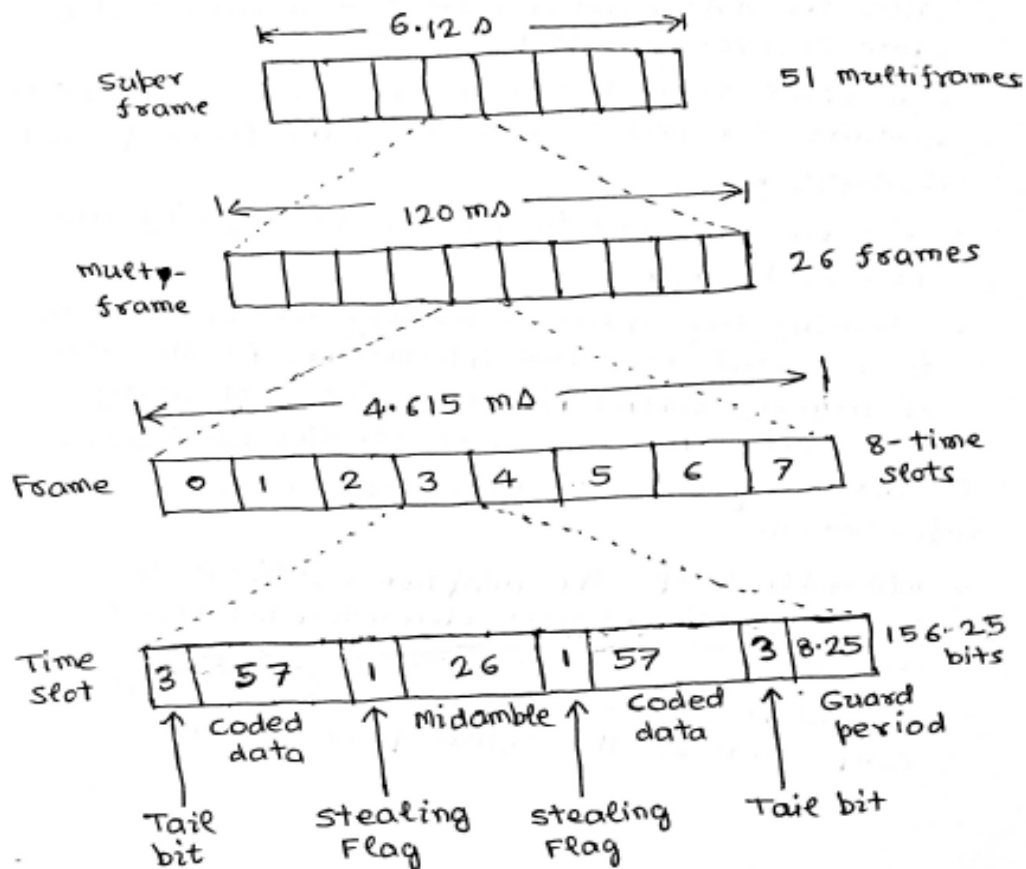 6.12 s
Super
frame
51 multiframes
120 ms
multi-
frame
26 frames
4.615 ms
Frame
0 1 2 3 4 5 6 7
8-time
slots
Time
slot
3 57 1 26 1 57 3 8.25
156.25
bits
Coded
data
Midamble
Coded
data
Guard
period
Tail
bit
Stealing
Flag
Stealing
Flag
Tail bit